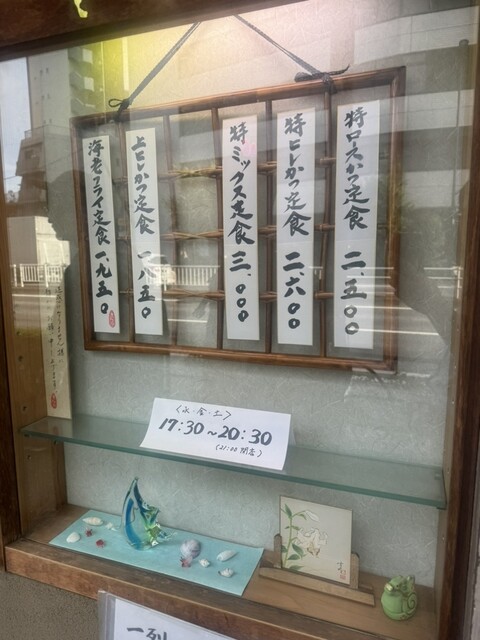 特ロースかつ定食 二、五〇〇
特ヒレかつ定食 二、六〇〇
特ミックス定食 三、〇〇〇
上ヒレかつ定食 一、八五〇
海老フライ定食 一、九五〇
〈水・金・土〉
17:30～20:30
(21:00 閉店)
一列